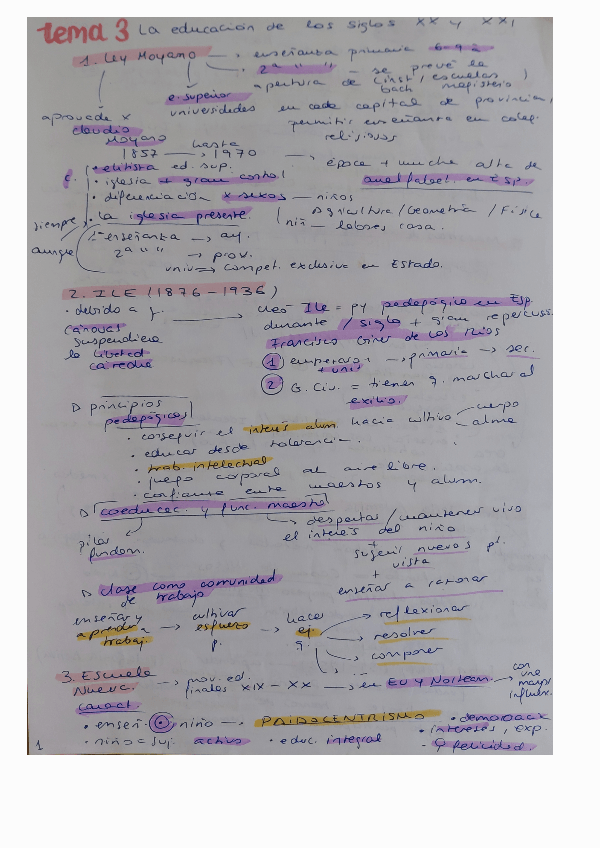 tema 3 La educación de los siglos XX y XXI
1. Ley Moyano → enseñanza primaria 6-9 a
2ª " " " - se prevé la
apertura de (inst/escuelas)
bach magisterio
e. superior
universidades en cada capital de provincia,
permitir enseñanza en coleg.
religiosos
aprobada x
Claudio
Moyano
hasta
1857 → 1970 → época + mucha alta de
analfabet. en Esp.
C. • elitista ed. sup.
• iglesia + gran control
• diferenciación x sexos — niños Agricultura/Geometría/Física
niñ — labores casa.
siempre • la iglesia presente
aunque 1ª enseñanza → ay.
2ª " " → prov.
univ → compet. exclusiva en Estado.
2. ILE (1876-1936)
• debido a q.
Cánovas
suspendiera
la libertad
cátedra
creó Ile = py pedagógico en Esp.
durante 1 siglo + gran repercus.
Francisco Giner de los Ríos
1 empezaron → primaria → sec.
+ univ
2 G. Civ. = tienen q. marchar al
exilio.
▷ principios
pedagógicos
• conseguir el interés alum. hacia cultivo cuerpo
alma
• educar desde tolerancia.
• trab. intelectual
• juego corporal al aire libre.
• confianza entre maestros y alum.
▷ coeducac. y func. maestro
pilar
fundam.
despertar/mantener vivo
el interés del niño
+
sugerir nuevos p.
vista
+
enseñar a razonar
▷ clase como comunidad
de trabajo
enseñar y
aprender a
trabaj.
→ cultivar
esfuerzo
p.
→ hacer
ej.
q.
reflexionar
resolver
comparar
3. Escuela
Nueva.
→ mov. ed.
finales XIX - XX → en EU y Norteam. → con
una mayor
influen.
caract.
• enseñ. niño → PAIDOCENTRISMO • democracx
• intereses, exp.
• niño = suj. activo • educ. integral • felicidad.
1